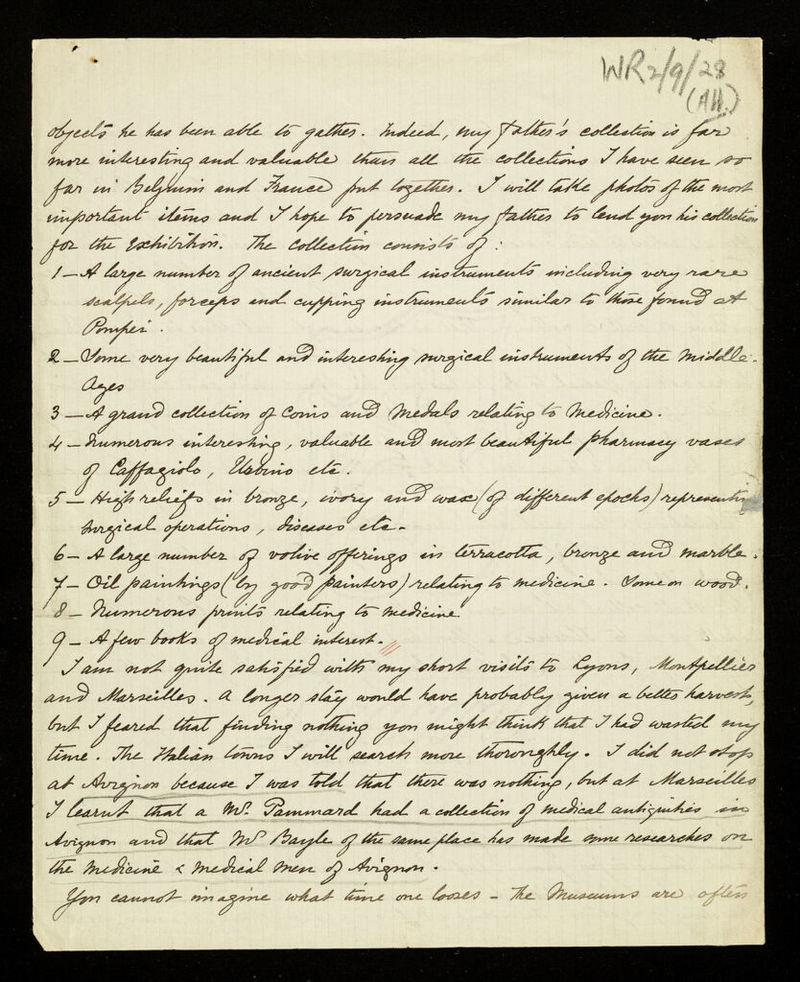 WR2/9/28
(AH.)
objects he has been able to gather. Indeed, my father's collection is far
more interesting and valuable than all the collections I have seen so
far in Belgium and France put together. I will take photos of the most
important items and I hope to persuade my father to lend you his collection
for the Exhibition. The collection consists of :
1 – A large number of ancient surgical instruments including very rare
scalpels, forceps and cupping instruments similar to those found at
Pompei.
2 – Some very beautiful and interesting surgical instruments of the Middle-
Ages
3 – A grand collection of Coins and Medals relating to Medicine.
4 – Numerous interesting, valuable and most beautiful pharmacy vases
of Caffagiolo, Urbino etc.
5 – High reliefs in bronze, ivory and wax (of different epochs) representing
surgical operations, diseases etc.
6 – A large number of votive offerings in terracotta, bronze and marble.
7 – Oil paintings (by good painters) relating to medicine. Some on wood.
8 – Numerous prints relating to medicine
9 – A few books of medical interest.
I am not quite satisfied with my short visits to Lyons, Montpellier
and Marseilles. A longer stay would have probably given a better harvest,
but I feared that finding nothing you might think that I had wasted my
time. The Italian towns I will search more thoroughly. I did not stop
at Avignon because I was told that there was nothing, but at Marseilles
I learnt that a Mr. Pammard had a collection of medical antiquities in
Avignon and that Mr Bayle of the same place has made some researches on
the Medicine & Medical men of Avignon.
You cannot imagine what time one looses – The Museums are often